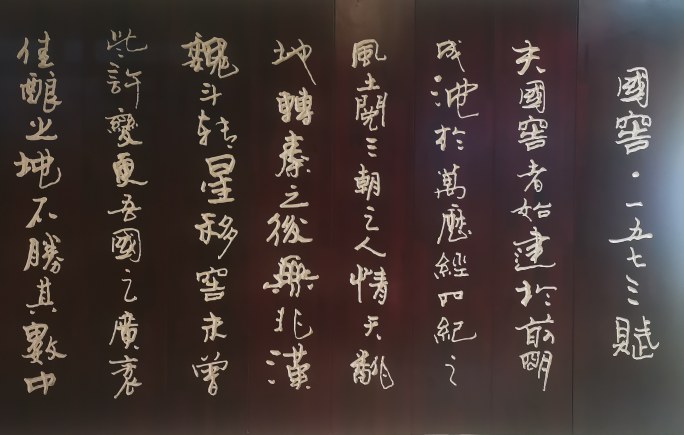 國窖·一五七三賦
夫國窖者始建於前明
成池於萬歷經四紀之
風土閱三朝之人情天翻
地轉秦之後無非漢
魏斗转星移窖未曾
些許變更吾國之廣袤
佳釀之地不勝其數中